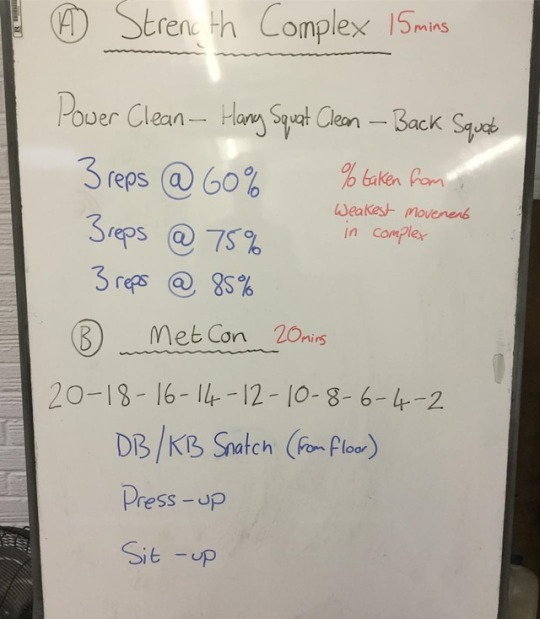 A Strength Complex 15mins
Power Clean - Hang Squat Clean - Back Squat
3 reps @ 60%
3 reps @ 75%
3 reps @ 85%
% taken from
weakest movement
in complex
B MetCon 20mins
20-18-16-14-12-10-8-6-4-2
DB/KB Snatch (from floor)
Press-up
Sit-up